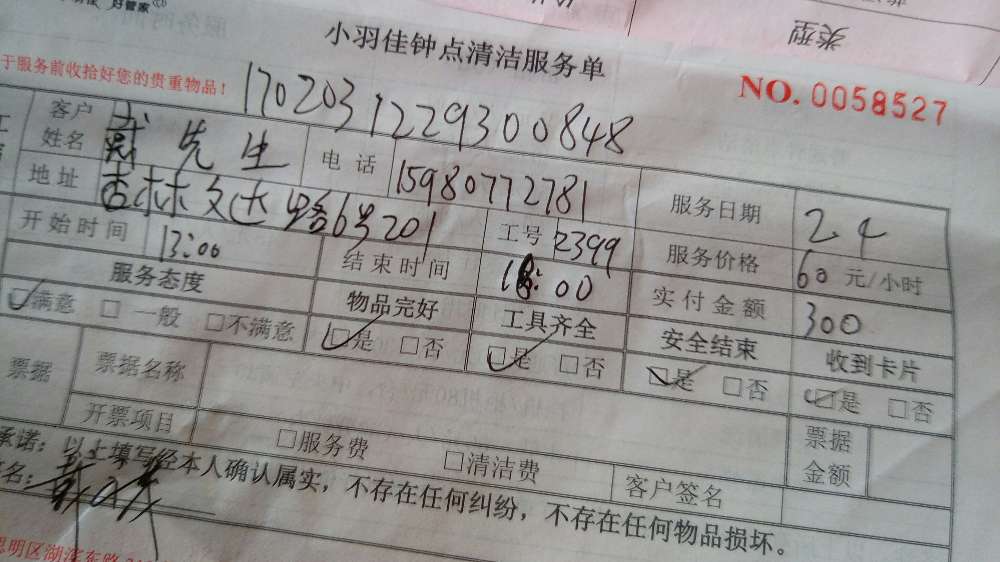 好管家
类型
小羽佳钟点清洁服务单
于服务前收拾好您的贵重物品!
NO. 0058527
170203122930 0848
客户姓名 戴先生 电话 15980772781 服务日期 2.4
地址 杏林文达路6号201 工号 2399 服务价格 60 元/小时
开始时间 13:00 结束时间 18:00 实付金额 300
服务态度 物品完好 工具齐全 安全结束 收到卡片
☑满意 □一般 □不满意 ☑是 □否 ☑是 □否 ☑是 □否 ☑是 □否
票据 票据名称 票据金额
开票项目 □服务费 □清洁费 客户签名
承诺：以上填写经本人确认属实，不存在任何纠纷，不存在任何物品损坏。
名：
思明区湖滨东路